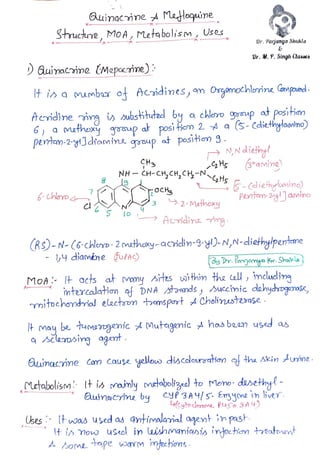 Quinacrine & Mefloquine
Structure, MOA, Metabolism, Uses
Dr. Parjanya Shukla
&
Dr. M. P. Singh Classes
1) Quinacrine (Mepacrine):-
It is a member of Acridines, an Organochlorine Compound.
Acridine ring is substituted by a chloro group at position
6, a methoxy group at position 2 & a (5-(diethylamino)
pentan-2-yl] diamine group at position 9.
N,N diethyl
(3° amine)
CH3
C2H5
NH - CH-CH2CH2CH2-N
C2H5
5-(diethylamino)
pentan-2-yl] amino
OCH3
2-Methoxy
6-Chloro
Cl
9
8
1
7
2
6
3
5
N
4
10
Acridine ring
(RS)-N-(6-chloro-2 methoxy-acridin-9-yl)-N,N-diethylpentane
-1,4 diamine (IUPAC)
By Dr. Parjanya Kr. Shukla
MOA:- It acts at many sites within the cell, including
intercalation of DNA strands, succinic dehydrogenase,
mitochondrial electron transport & Cholinesterase.
It may be tumorogenic & Mutagenic & has been used as
a sclerosing agent.
Quinacrine can cause yellow discolouration of the skin & urine.
Metabolism:- It is mainly metabolized to Mono-desethyl-
Quinacrine by CYP 3A4/5- Enzyme in liver.
(Cytochrome P450 3A4)
Uses:- It was used as antimalarial agent in past.
It is now used in leishmaniasis infection treatment
& some tape worm infections.